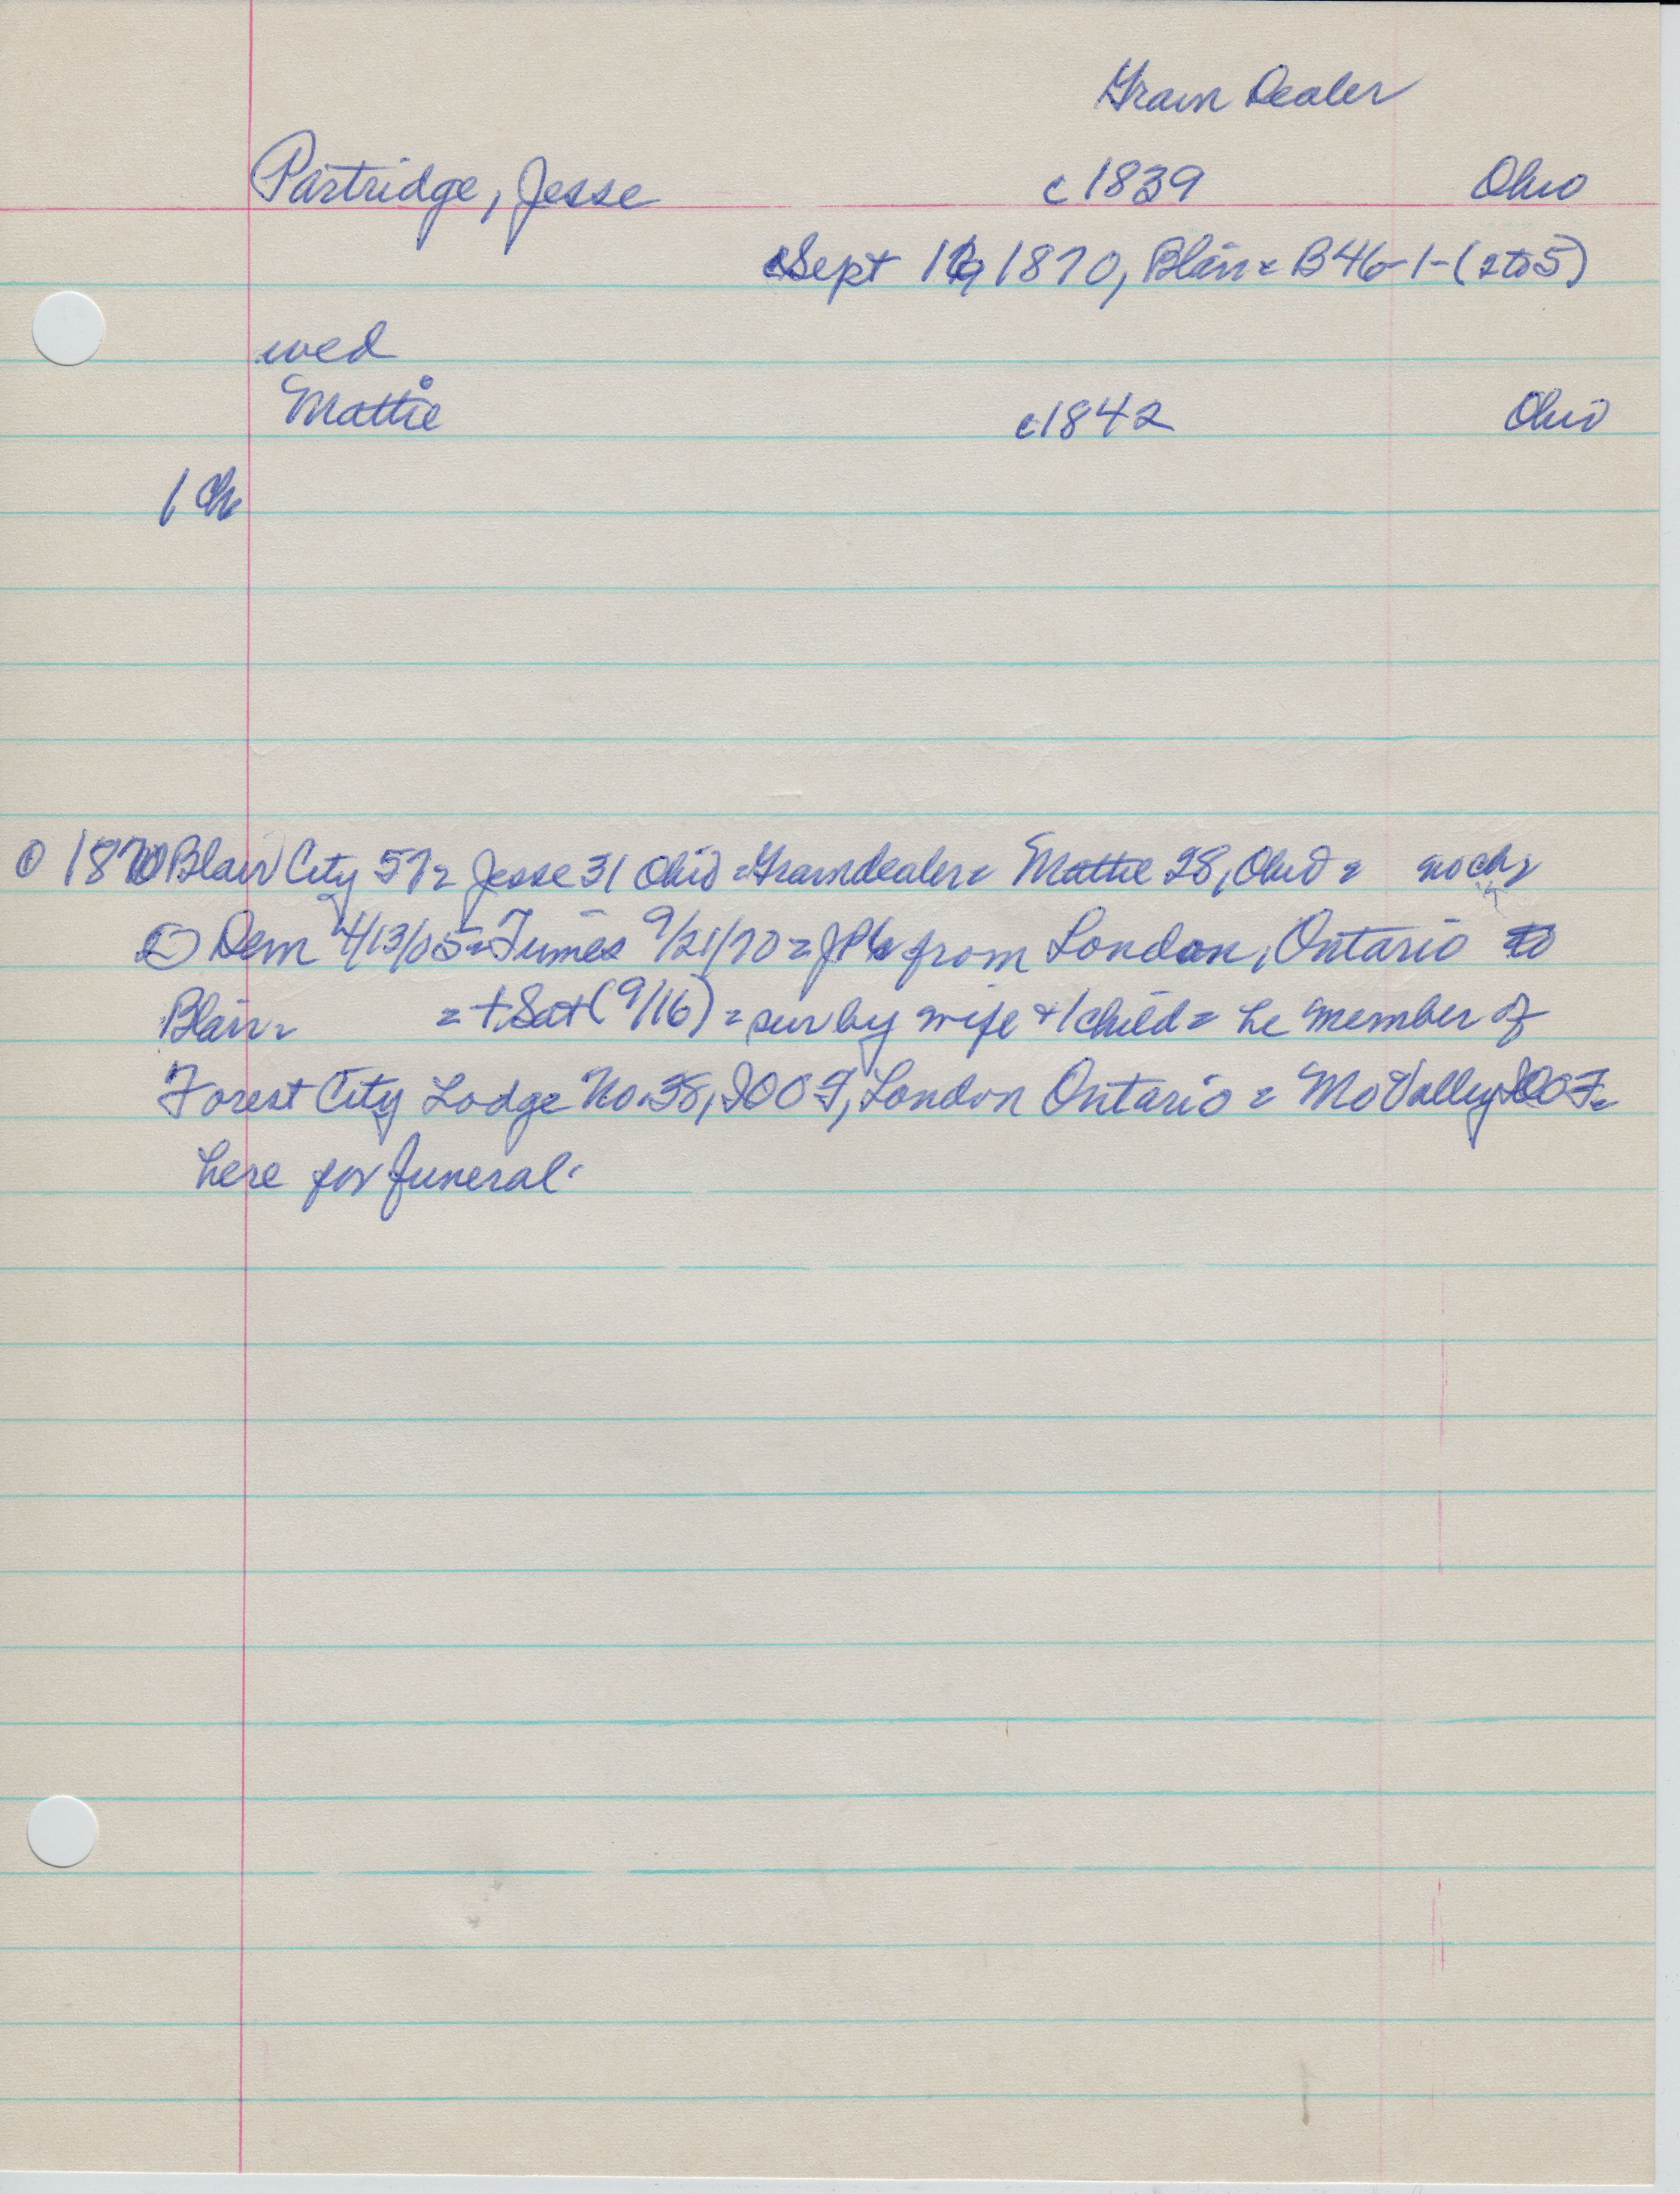 Grain Dealer
Partridge, Jesse c1839 Ohio
Sept 16, 1870, Blair = B46-1-(2to5)
wed
Mattie c1842 Ohio
1 ch
① 1870 Blair City 57 = Jesse 31 Ohio = Graindealer = Mattie 28, Ohio = no ch
② Dem 4/13/05 = Times 9/21/70 = JP from London, Ontario to
Blair = + Sat (9/16) = sur by wife + 1 child = he member of
Forest City Lodge No. 38, IOOF, London Ontario = Mo Valley IOOF =
here for funeral.